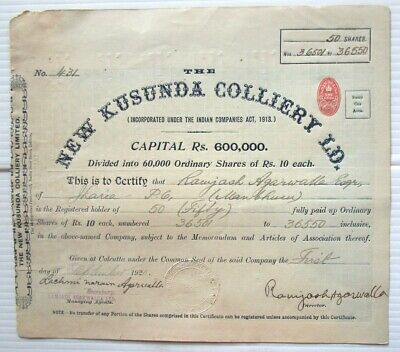 50 SHARES.
Nos. 36501 to 36550
THE
No. 431
NEW KUSUNDA COLLIERY LD.
(INCORPORATED UNDER THE INDIAN COMPANIES ACT, 1913.)
CAPITAL Rs. 600,000.
Divided into 60,000 Ordinary Shares of Rs. 10 each.
This is to Certify that Ramjash Agarwalla Esqr.
of Jharia P.O. Manbhum
is the Registered holder of 50 (Fifty) fully paid up Ordinary
Shares of Rs. 10 each, numbered 36501 to 36550 inclusive,
in the above-named Company, subject to the Memorandum and Articles of Association thereof.
Given at Calcutta under the Common Seal of the said Company the First
day of 192
Lachmi narain Agarwalla
Ramjash Agarwalla
Managing Agents.
Director.
NOTE.—No transfer of any Portion of the Shares comprised in this Certificate can be registered unless accompanied by this Certificate.
THE NEW KUSUNDA COLLIERY LIMITED.